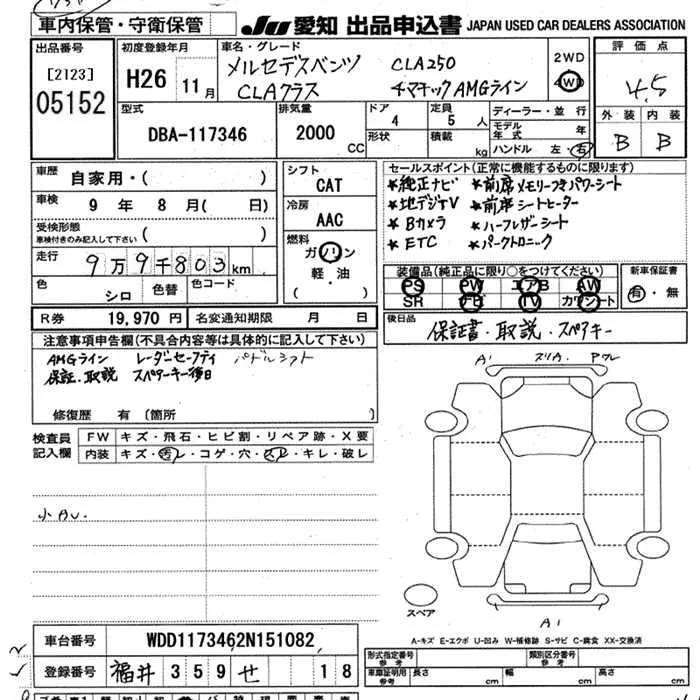 車内保管・守衛保管
JU 愛知 出品申込書 JAPAN USED CAR DEALERS ASSOCIATION
出品番号
[2123]
05152
初度登録年月
H26 11月
車名・グレード
メルセデスベンツ CLA250
CLAクラス 4マチックAMGライン
2WD
4WD
評価点
4.5
外装 内装
B B
型式
DBA-117346
排気量
2000 CC
ドア
4
形状
定員
5 人
積載 kg
ディーラー・並行
モデル年式 年
ハンドル 左 右
車歴
自家用・( )
車検 9年 8月( 日)
受検形態
車検付きのみ記入して下さい ( )
走行 9万9千803km
色 シロ 色替 色コード
シフト
CAT
冷房
AAC
燃料
ガソリン
軽・油
( )
セールスポイント(正常に機能するものに限ります)
*純正ナビ *前席メモリーつきパワーシート
*地デジTV *前席シートヒーター
*Bカメラ *ハーフレザーシート
*ETC *パークトロニック
装備品(純正品に限り○をつけてください)
PS PW エアB AW
SR TV カワシート
新車保証書
有・無
R券 19,970 円 名変通知期限 月 日
後日品
保証書・取説・スペアキー
注意事項申告欄(不具合内容等は具体的に記入して下さい)
AMGライン レーダーセーフティ パドルシフト
保証.取説 スペアーキー後日
修復歴 有 (箇所 )
検査員記入欄
FW キズ・飛石・ヒビ割・リペア跡・X要
内装 キズ・汚レ・コゲ・穴・スレ・キレ・破レ
小AU.
A1 スリA.
スペア
A1
A-キズ E-エクボ U-凹み W-補修跡 S-サビ C-腐食 XX-交換済
車台番号 WDD1173462N151082
登録番号 福井 359 せ 18
形式指定番号 参考
類別区分番号 参考
車庫証明用 参考 長さ 幅 高さ